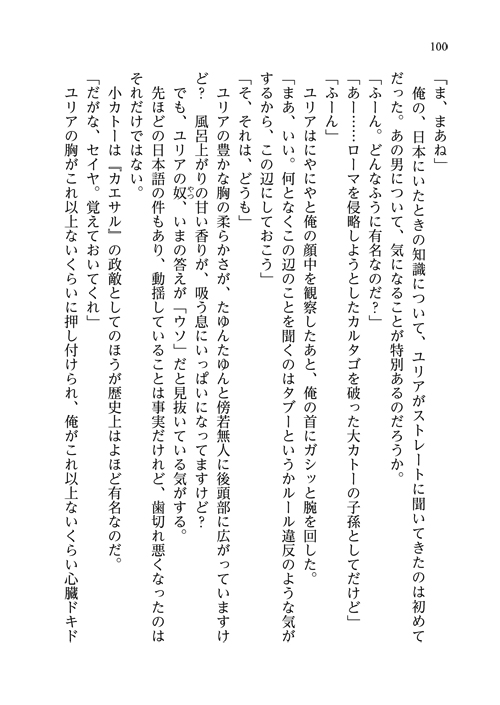 100
「ま、まあね」
俺の、日本にいたときの知識について、ユリアがストレートに聞いてきたのは初めて
だった。あの男について、気になることが特別あるのだろうか。
「ふーん。どんなふうに有名なのだ？」
「あー……ローマを侵略しようとしたカルタゴを破った大カトーの子孫としてだけど」
「ふーん」
ユリアはにやにやと俺の顔中を観察したあと、俺の首にガシッと腕を回した。
「まあ、いい。何となくこの辺のことを聞くのはタブーというかルール違反のような気が
するから、この辺にしておこう」
「そ、それは、どうも」
ユリアの豊かな胸の柔らかさが、たゆんたゆんと傍若無人に後頭部に広がっていますけ
ど？　風呂上がりの甘い香りが、吸う息にいっぱいになってますけど？
でも、ユリアの奴、いまの答えが「ウソ」だと見抜いている気がする。
やつ
先ほどの日本語の件もあり、動揺していることは事実だけれど、歯切れ悪くなったのは
それだけではない。
小カトーは『カエサル』の政敵としてのほうが歴史上はよほど有名なのだ。
「だがな、セイヤ。覚えておいてくれ」
ユリアの胸がこれ以上ないくらいに押し付けられ、俺がこれ以上ないくらい心臓ドキド